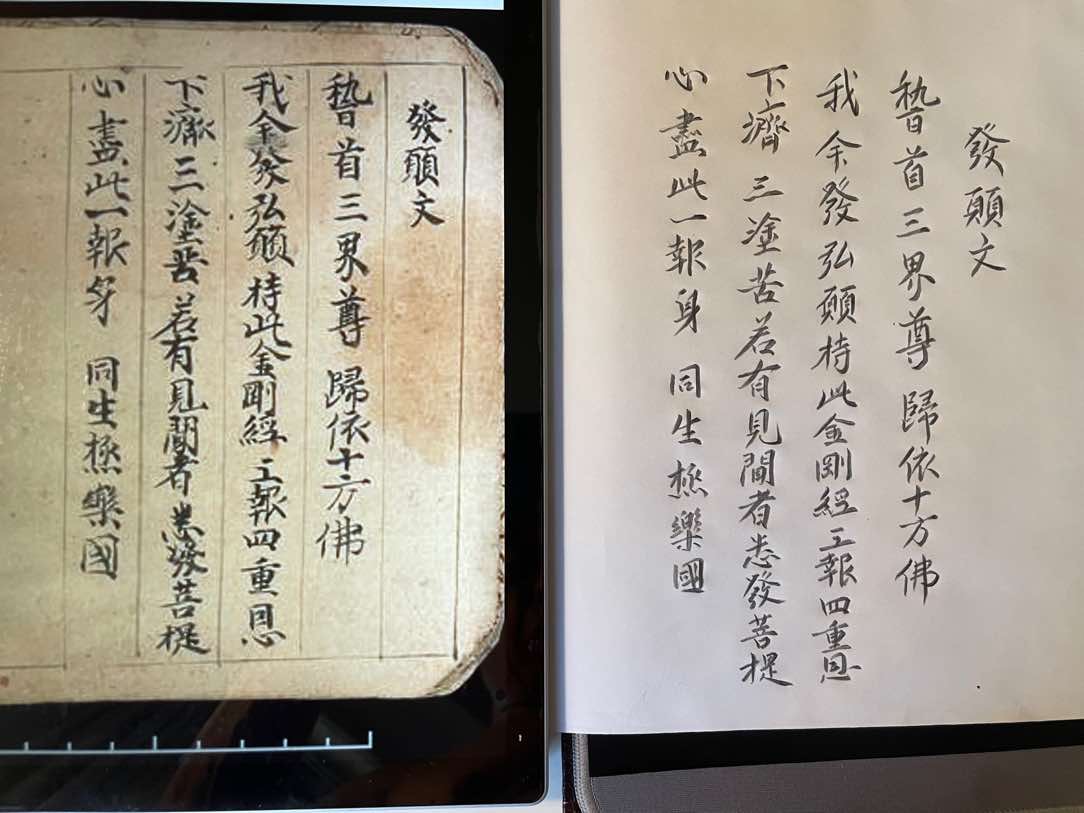 發願文
稽首三界尊 歸依十方佛
我余發弘願 持此金剛經 工報四重恩
下濟三塗苦 若有見聞者 悉發菩提
心 盡此一報身 同生極樂國
發願文
稽首三界尊 歸依十方佛
我余發弘願持此金剛經工報四重恩
下濟三塗苦若有見聞者悉發菩提
心盡此一報身 同生極樂國